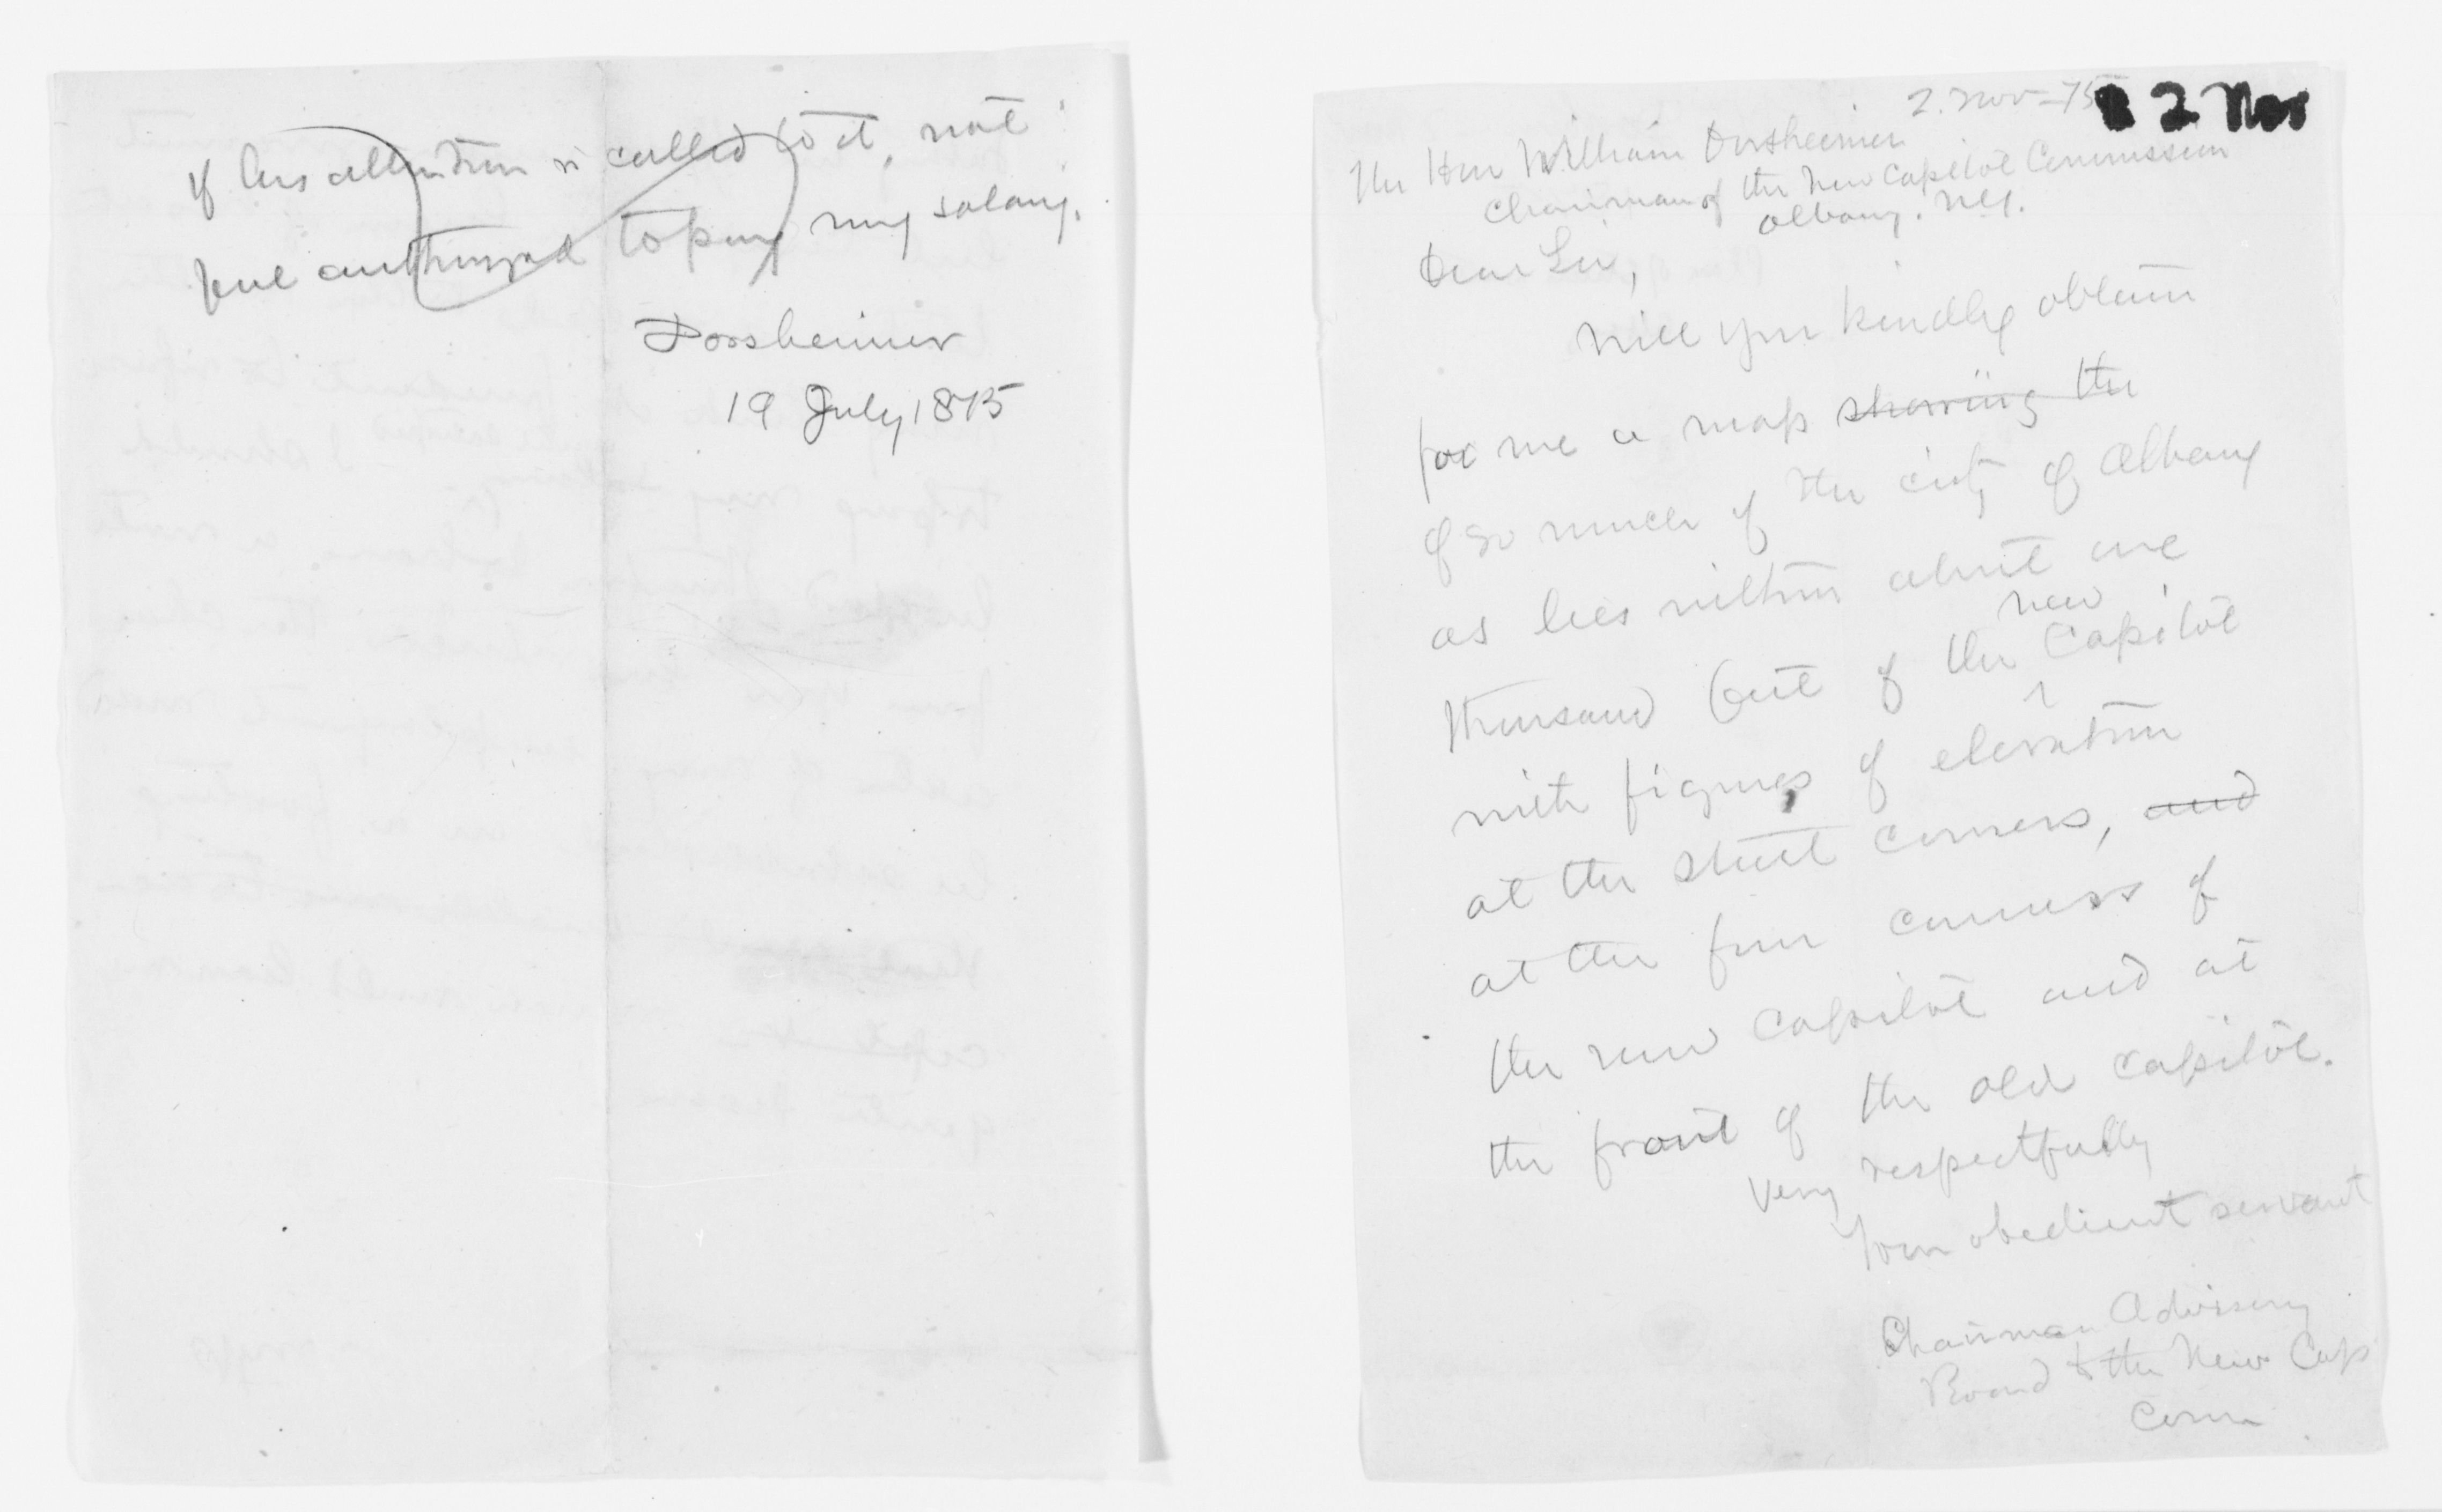 If his attention is called to it, not
feel authorized to pay my salary.
Dorsheimer
19 July 1875
2. Nov - 75 2 Nov
The Hon William Dorsheimer
Chairman of the New Capitol Commission
Albany. N.Y.
Dear Sir,
Will you kindly obtain
for me a map showing the
of so much of the city of Albany
as lies within about one
new
thousand feet of the Capitol
with figures of elevation
at the street corners, and
at the four corners of
the new Capitol and at
the front of the old capitol.
Very respectfully
Your obedient servant
Chairman Advisory
Board to the New Cap
Comn